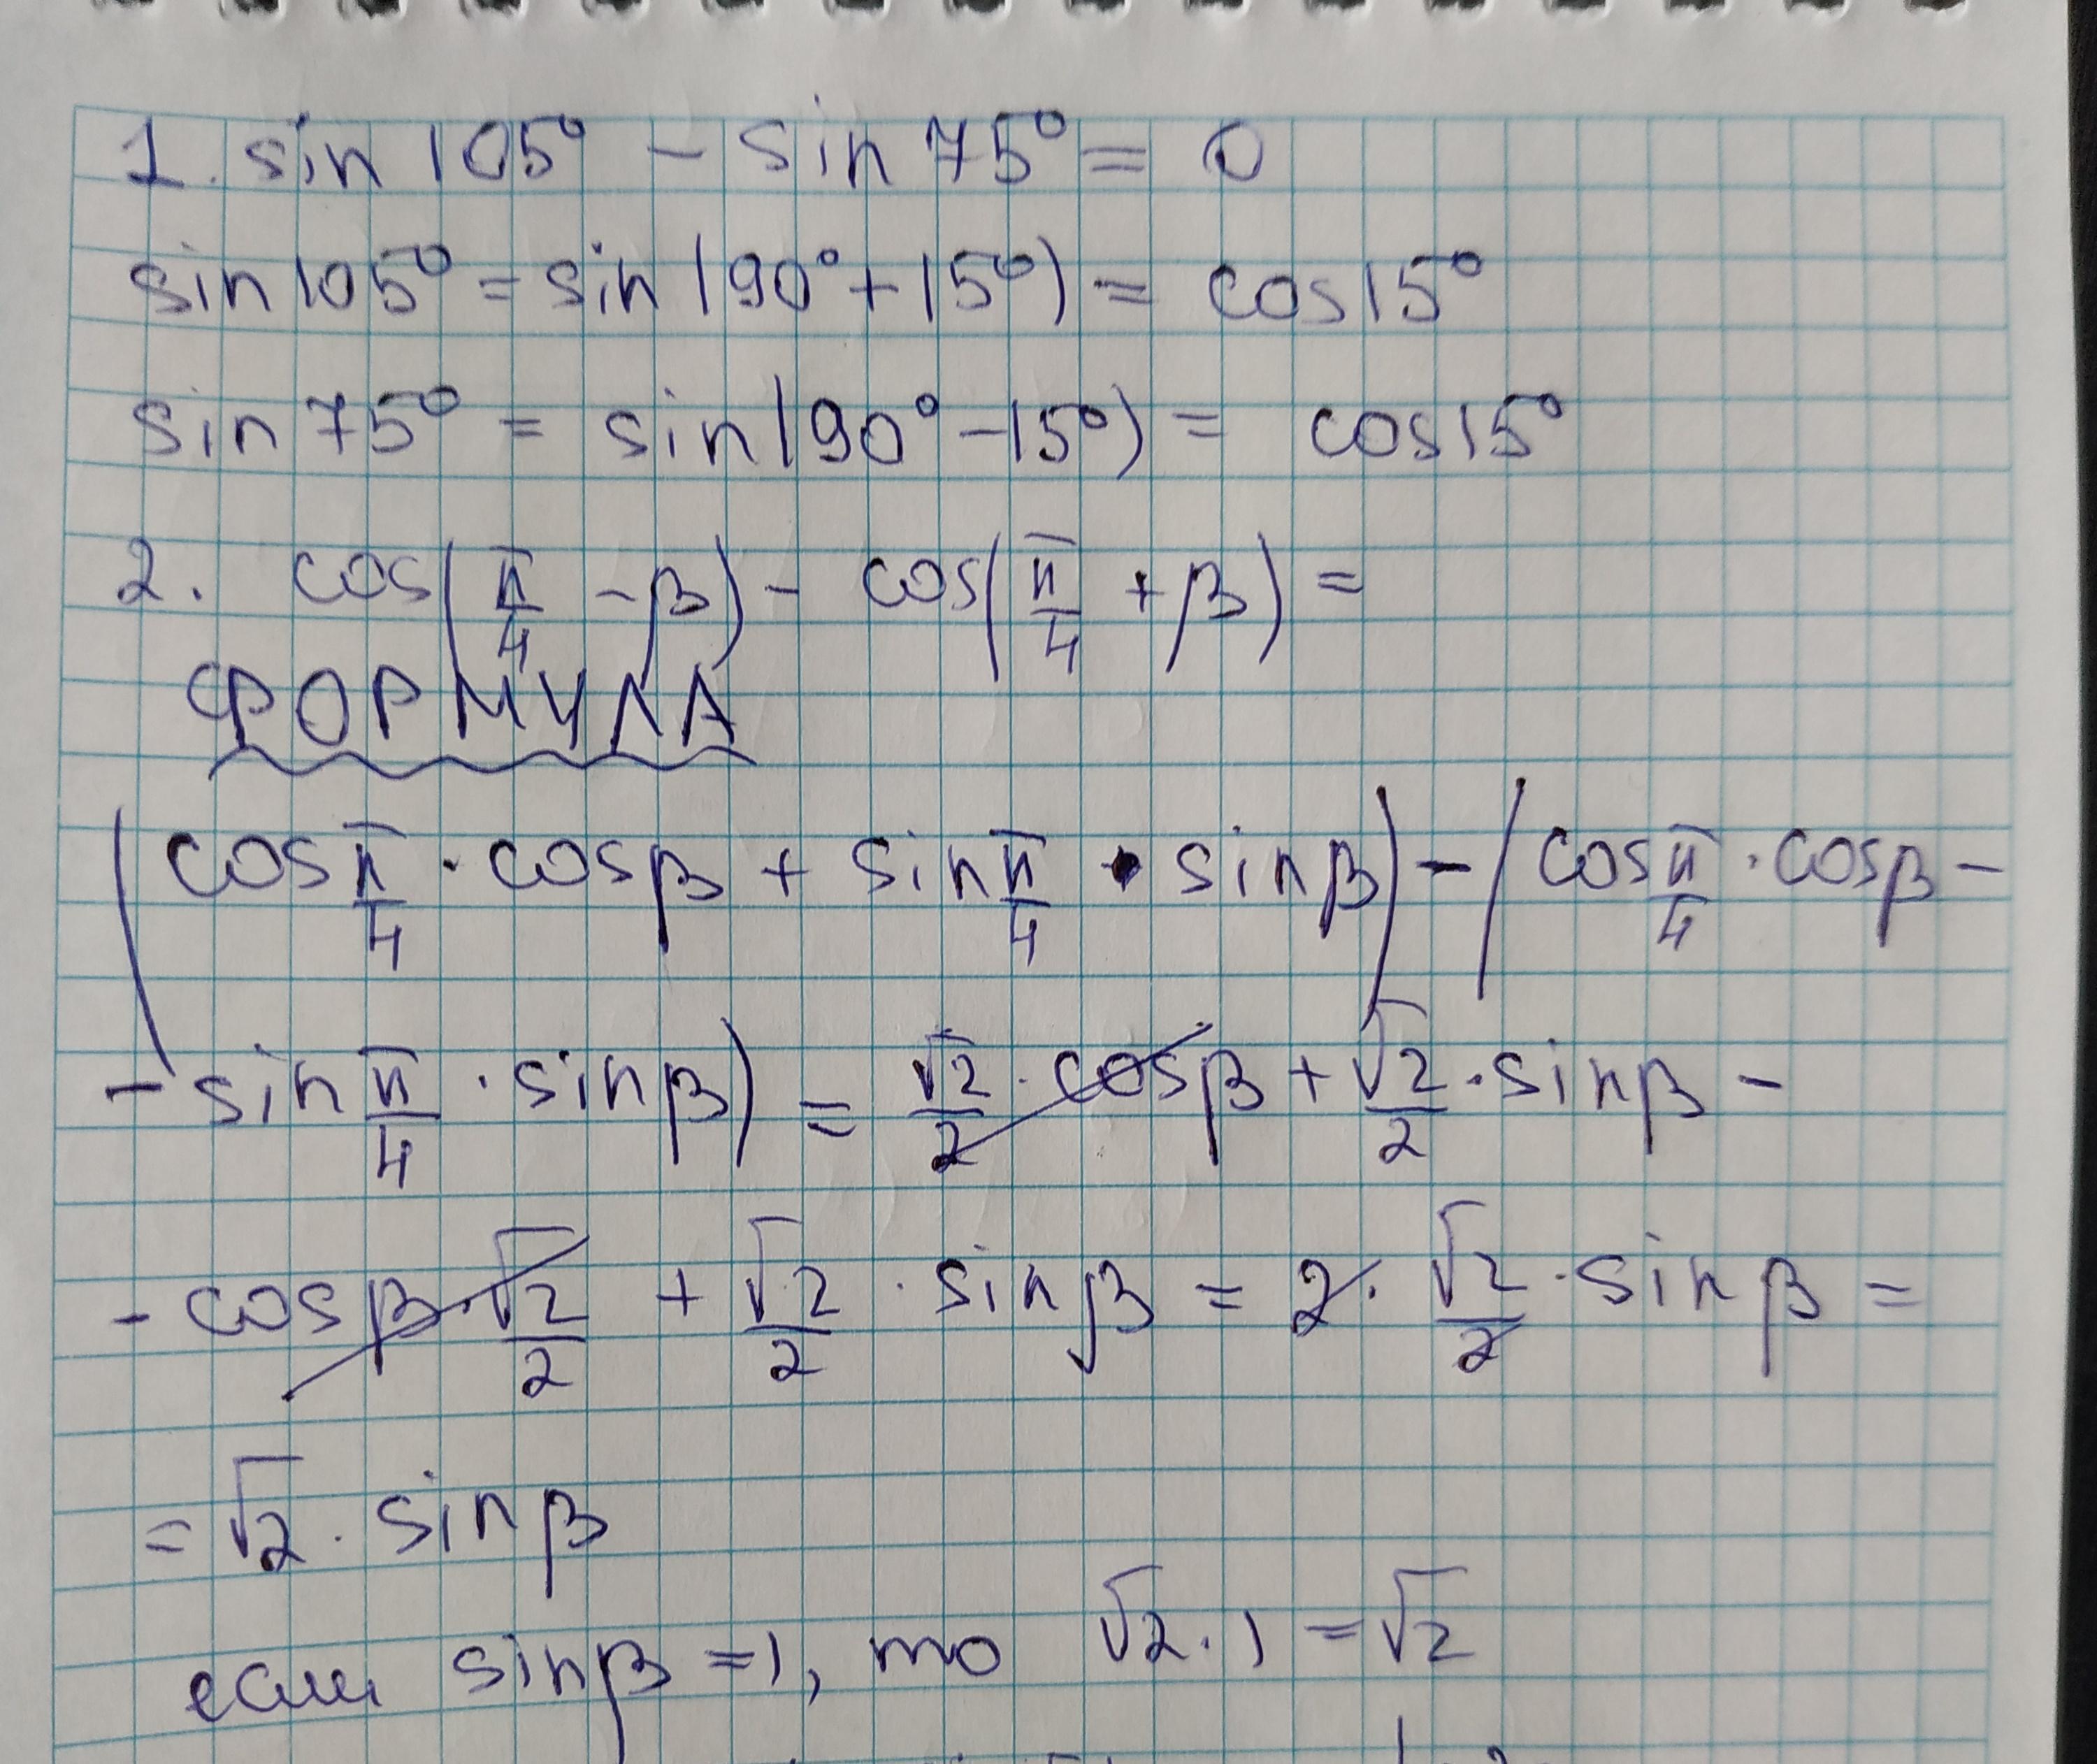 1. sin 105° - sin 75° = 0
sin 105° = sin (90° + 15°) = cos 15°
sin 75° = sin (90° - 15°) = cos 15°
2. cos(π/4 - β) - cos(π/4 + β) =
ФОРМУЛА
(cos π/4 · cos β + sin π/4 · sin β) - (cos π/4 · cos β -
- sin π/4 · sin β) = √2/2 · cos β + √2/2 · sin β -
- cos β · √2/2 + √2/2 · sin β = 2 · √2/2 · sin β =
= √2 · sin β
если sin β = 1, то √2 · 1 = √2